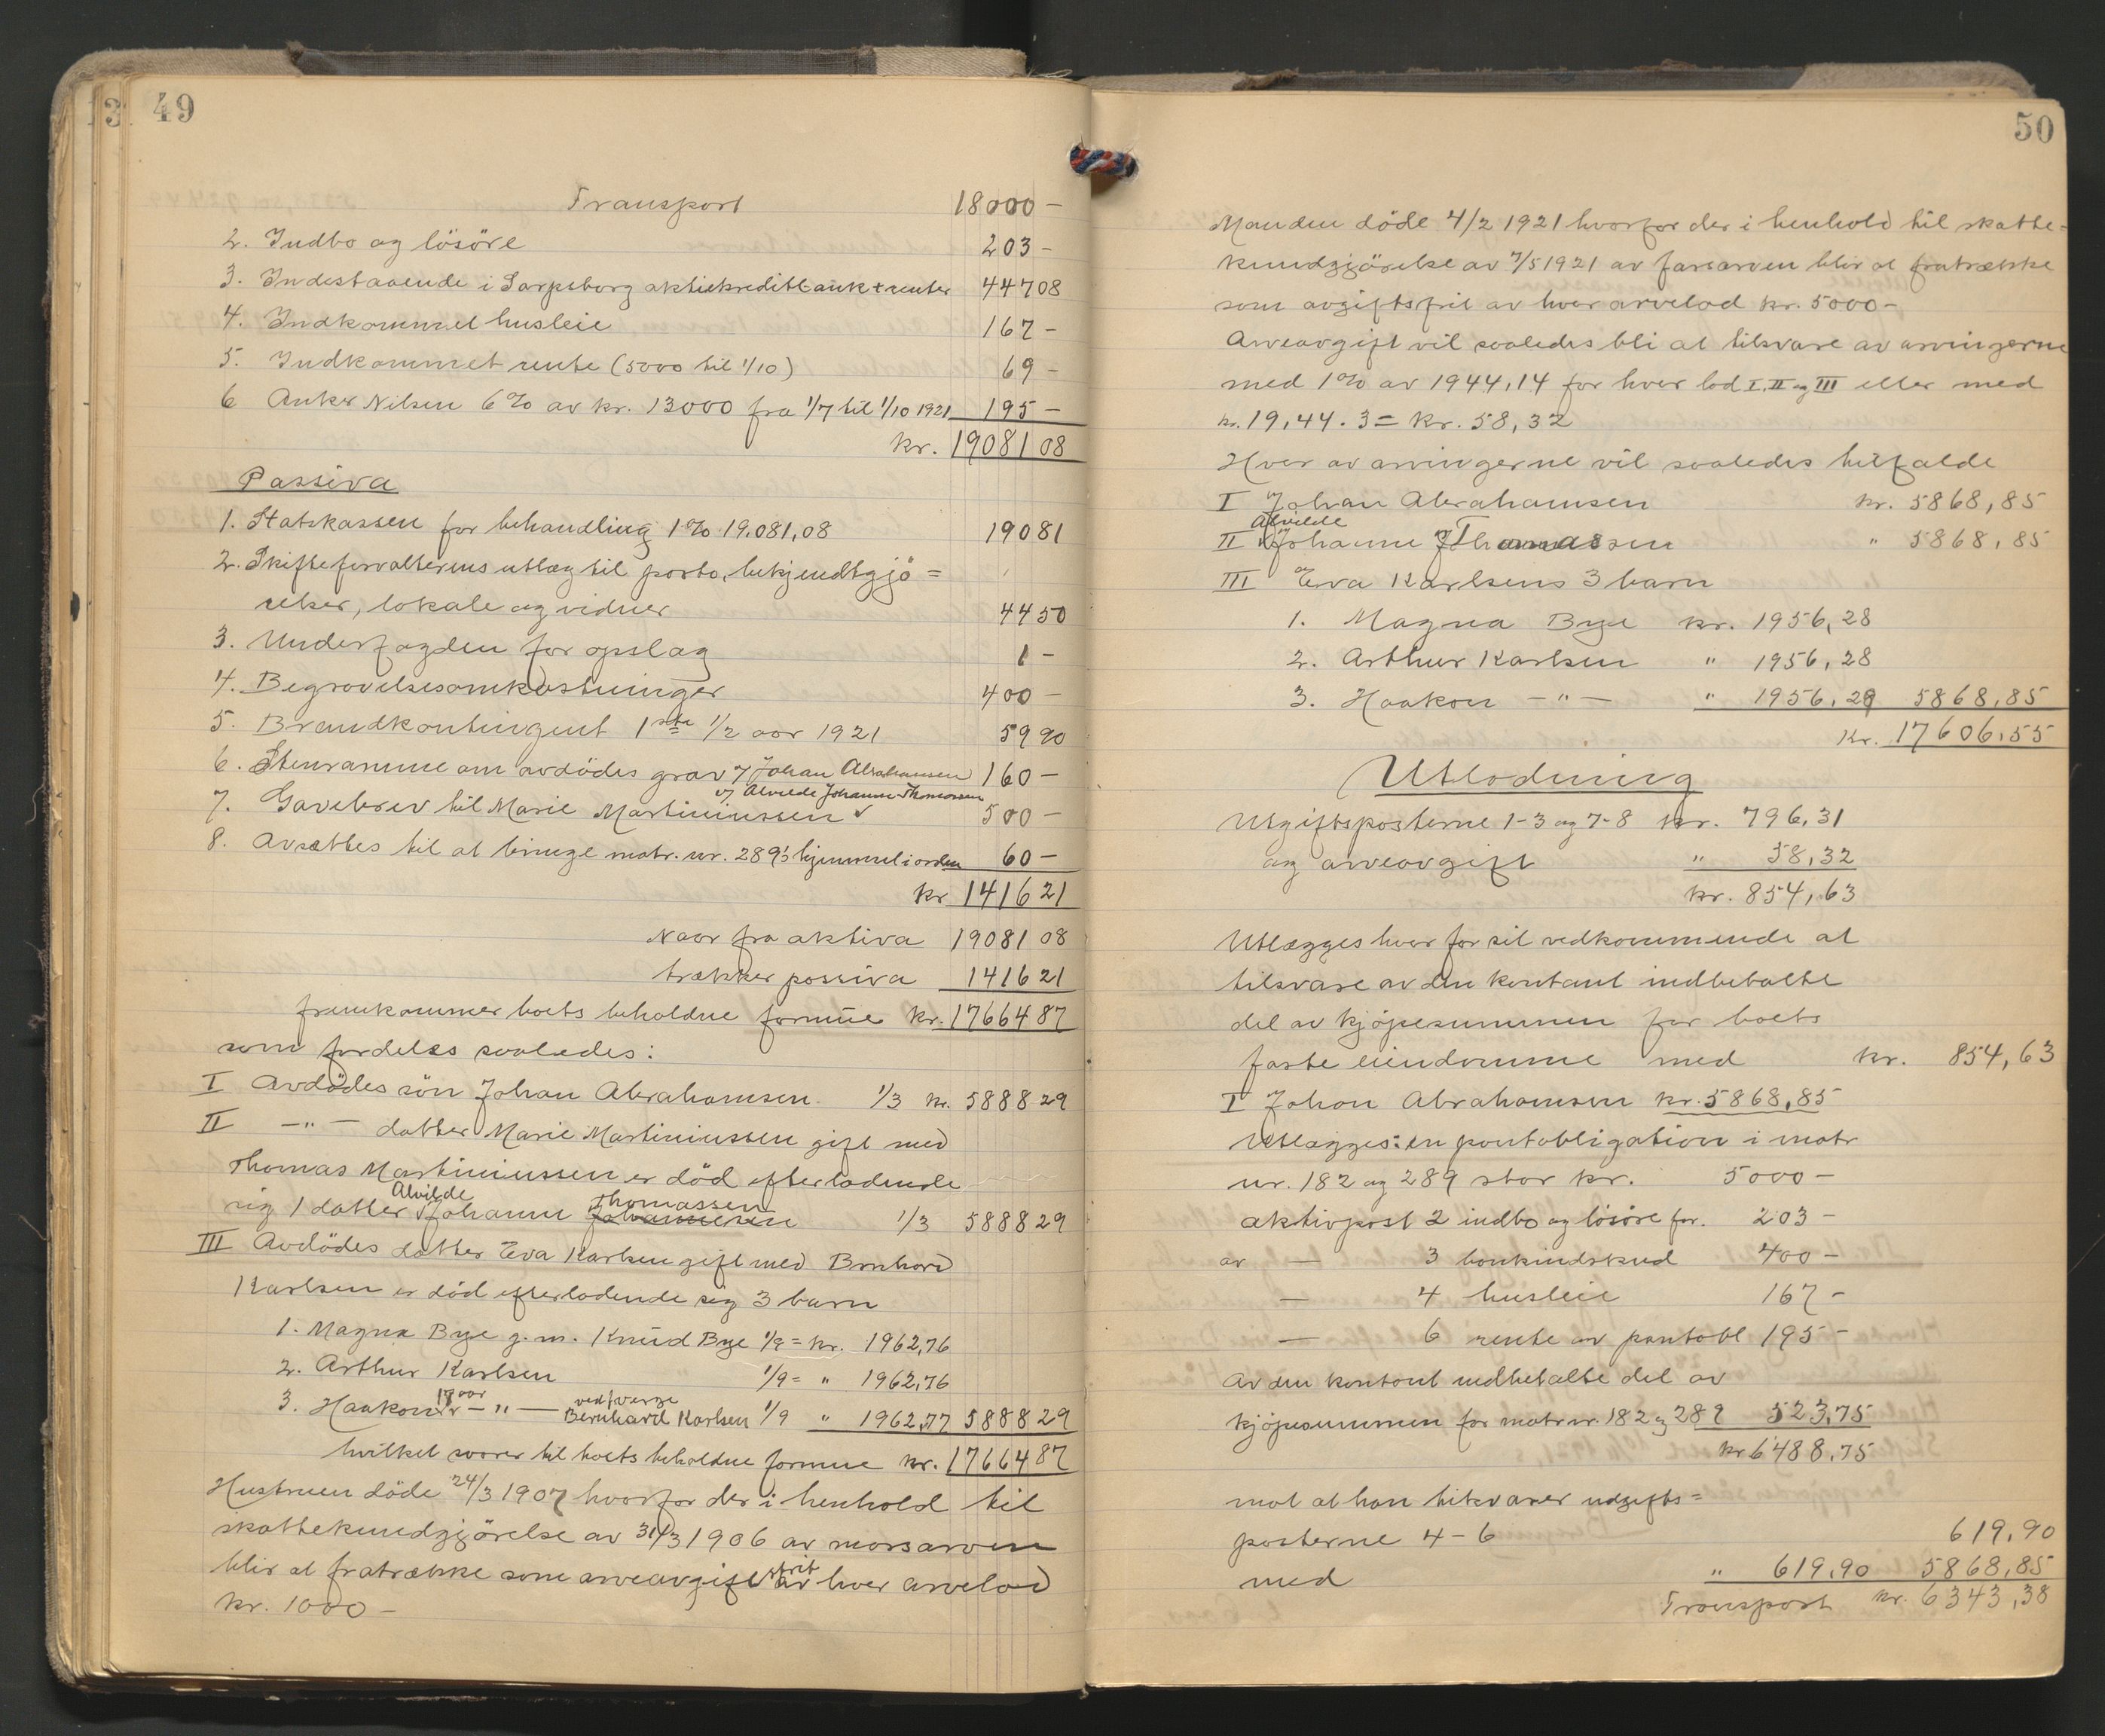 13 49
Transport 18000 —
2. Indbo og lösöre 203 —
3. Indestaaende i Sarpsborg aktiekreditbank + renter 447 08
4. Indkommet husleie 167 —
5. Indkommet rente (5000 til 1/10) 69 —
6 Anker Nilsen 6% av kr. 13000 fra 1/7 til 1/10 1921 195 —
kr. 19081 08
Passiva
1. Statskassen for behandling 1% 19.081,08 190 81
2. Skifteforvalterens utlæg til porto, bekjendtgjö=
relser, lokale og vidner 44 50
3. Underfogden for opslag 1 —
4. Begravelsesomkostninger 400 —
5. Brandkontingent 1ste 1/2 aar 1921 59 90
6. Stenramme om avdödes grav v/ Johan Abrahamsen 160 —
v/ Alvilde Johanne Thomassen
7. Gavebrev til Marie Martiniussen v 500 —
8. Avsættes til at bringe matr. nr. 289's hjemmel i orden 60 —
kr 1416 21
Naar fra aktiva 19081 08
trækker passiva 1416 21
fremkommer boets beholdne formue kr. 17664 87
som fordeles saaledes:
I Avdödes sön Johan Abrahamsen. 1/3 kr. 5888 29
II —"— datter Marie Martiniussen gift med
Thomas Martiniussen er död efterladende
Alvilde Thomassen
sig 1 datter Johanne Johannesen 1/3 5888 29
III Avdödes datter Eva Karlsen gift med Bernhard
Karlsen er död efterladende sig 3 barn
1. Magna Bye g. m. Knud Bye 1/9 = kr. 1962,76
2. Arthur Karlsen 1/9 = " 1962,76
17 aar ved verge
3. Haakon —"— Bernhard Karlsen 1/9 " 1962,77 5888 29
hvilket svarer til boets beholdne formue kr. 17664 87
Hustruen döde 24/3 1907 hvorfor der i henhold til
skattekundgjörelse av 31/3 1906 av morsarven
blir at fratrække som arveavgiftsfrit av hver arvelod
kr. 1000 —
50
Manden döde 4/2 1921 hvorfor der i henhold til skatte-
kundgjörelse av 7/5 1921 av farsarven blir at fratrække
som avgiftsfrit av hver arvelod kr. 5000 —
Arveavgift vil saaledes bli at tilsvare av arvingerne
med 1% av 1944,14 for hver lod I, II og III eller med
kr. 19,44 . 3 = kr. 58,32
Hver av arvingerne vil saaledes tilfalde
I Johan Abrahamsen kr. 5868,85
Alvilde
II Johanne Thomassen " 5868,85
III Eva Karlsens 3 barn
1. Magna Bye kr. 1956,28
2. Arthur Karlsen " 1956,28
3. Haakon —"— " 1956,29 5868,85
Kr. 17606,55
Utlodning
Utgiftsposterne 1-3 og 7-8 kr. 796,31
og arveavgift " 58,32
kr. 854,63
Utlægges hver for sit vedkommende at
tilsvare av den kontant indbetalte
del av kjöpesummen for boets
faste eiendomme med kr. 854,63
I Johan Abrahamsen kr. 5868,85
Utlægges: en pantobligation i matr
nr. 182 og 289 stor kr. 5000 —
aktivpost 2 indbo og lösöre for. 203 —
av — 3 bankindskud 400 —
— 4 husleie 167 —
— 6 rente av pantobl 195 —
Av den kontant indbetalte del av
kjöpesummen for matr nr. 182 og 289 523,75
kr 6488,75
mot at han tilsvarer udgifts=
posterne 4 - 6 619,90
med " 619,90 5868,85
Transport kr. 6343,38